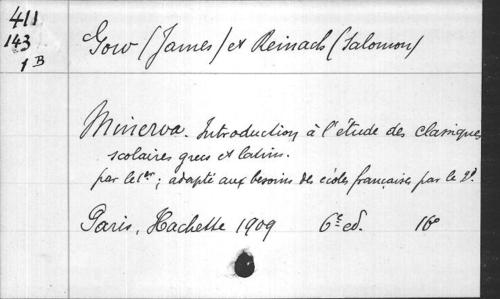 411
143
1 B
Gow (James) et Reinach (Salomon)
Minerva. Introduction à l'étude des classiques
scolaires grecs et latins.
par le 1er; adapté aux besoins des écoles françaises par le 2d.
Paris, Hachette 1909 6e ed. 16o